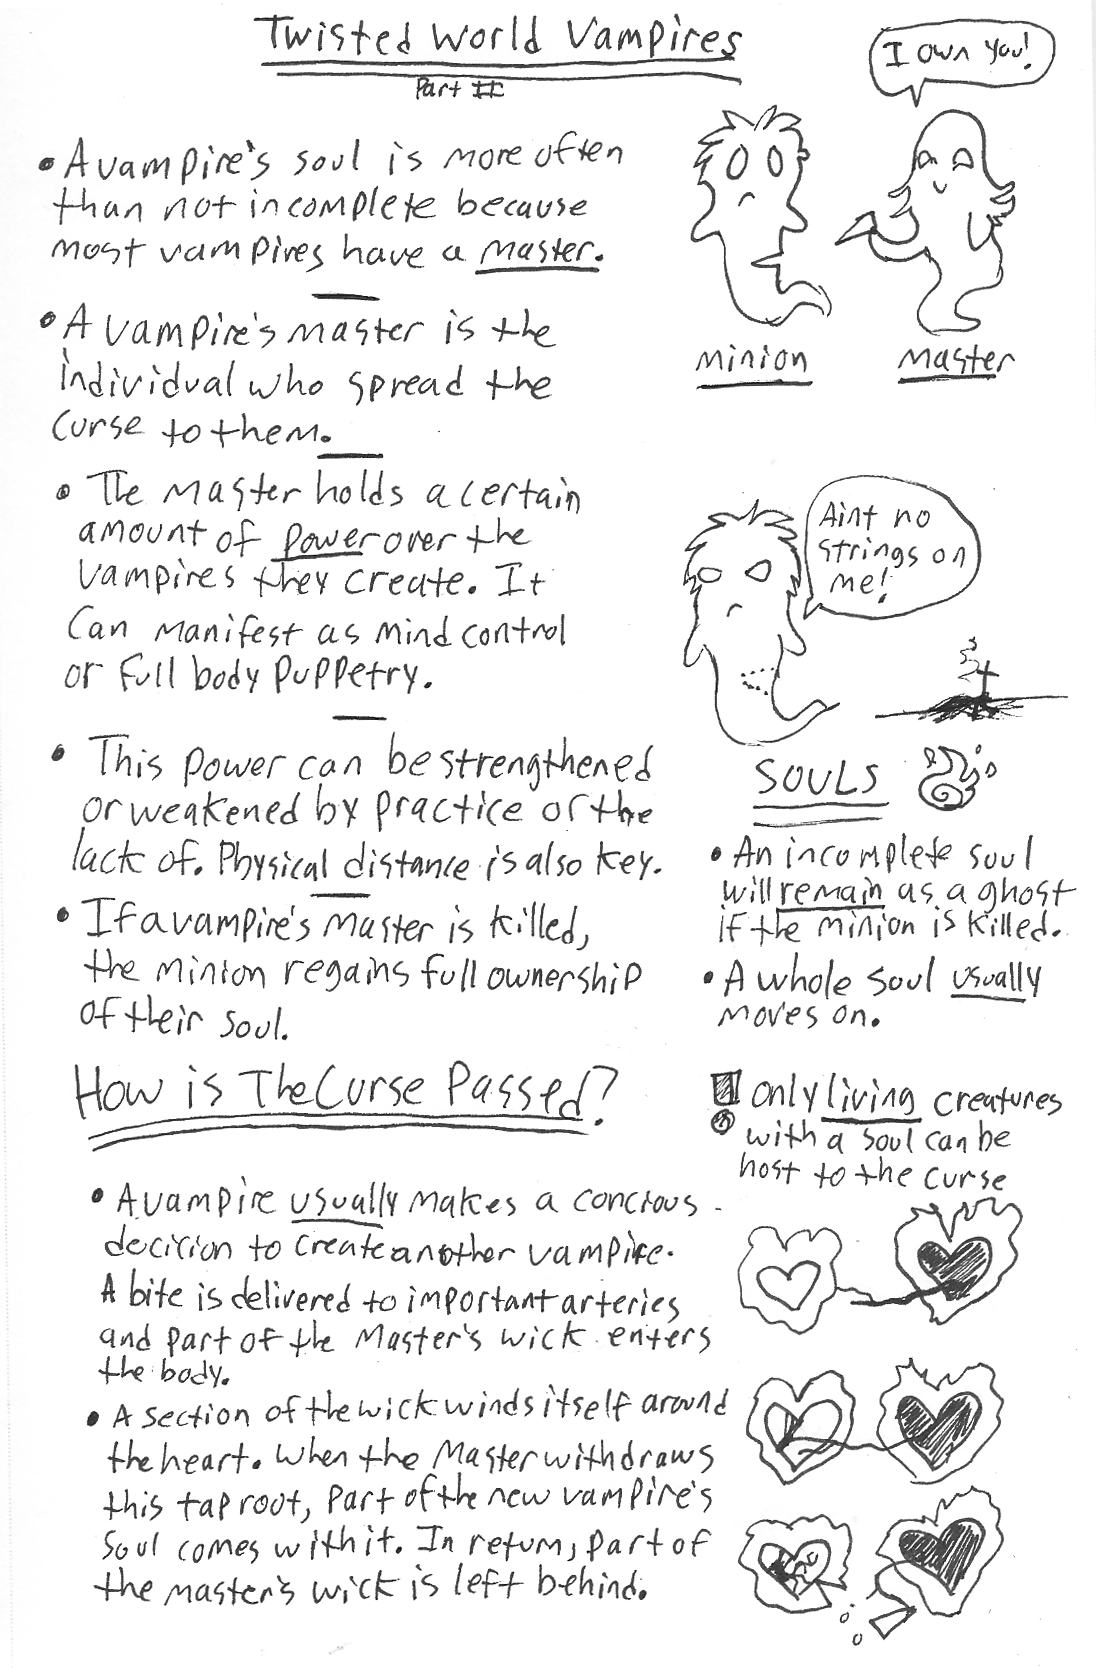 Twisted World Vampires
Part II
I own you!
• A vampire's soul is more often
than not incomplete because
most vampires have a master.
minion
master
• A vampire's master is the
individual who spread the
curse to them.
• The master holds a certain
amount of power over the
vampires they create. It
can manifest as mind control
or full body puppetry.
Aint no
strings on
me!
• This power can be strengthened
or weakened by practice or the
lack of. Physical distance is also key.
• If a vampire's master is killed,
the minion regains full ownership
of their soul.
SOULS
• An incomplete soul
will remain as a ghost
if the minion is killed.
• A whole soul usually
moves on.
How is The Curse Passed?
only living creatures
with a soul can be
host to the curse
• A vampire usually makes a concious
decision to create another vampire.
A bite is delivered to important arteries
and part of the Master's wick enters
the body.
• A section of the wick winds itself around
the heart. When the Master withdraws
this tap root, part of the new vampire's
soul comes with it. In return, part of
the master's wick is left behind.